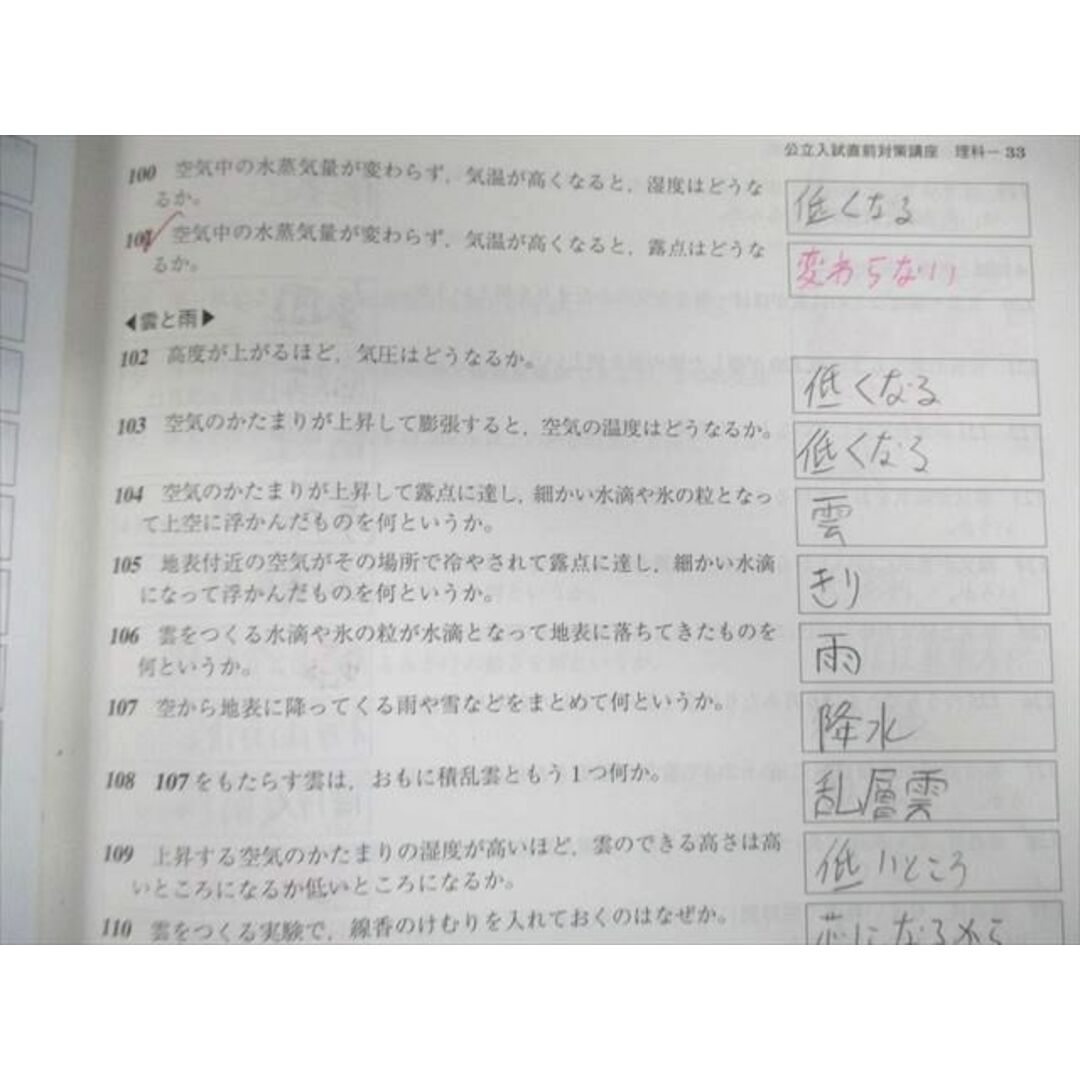 公立入試直前対策講座 理科－33
100 空気中の水蒸気量が変わらず，気温が高くなると，湿度はどうな
るか。
低くなる
101 空気中の水蒸気量が変わらず，気温が高くなると，露点はどうな
るか。
変わらない
◀雲と雨▶
102 高度が上がるほど，気圧はどうなるか。
低くなる
103 空気のかたまりが上昇して膨張すると，空気の温度はどうなるか。
低くなる
104 空気のかたまりが上昇して露点に達し，細かい水滴や氷の粒となっ
て上空に浮かんだものを何というか。
雲
105 地表付近の空気がその場所で冷やされて露点に達し，細かい水滴
になって浮かんだものを何というか。
きり
106 雲をつくる水滴や氷の粒が水滴となって地表に落ちてきたものを
何というか。
雨
107 空から地表に降ってくる雨や雪などをまとめて何というか。
降水
108 107をもたらす雲は，おもに積乱雲ともう1つ何か。
乱層雲
109 上昇する空気のかたまりの湿度が高いほど，雲のできる高さは高
いところになるか低いところになるか。
低いところ
110 雲をつくる実験で，線香のけむりを入れておくのはなぜか。
芯になるから